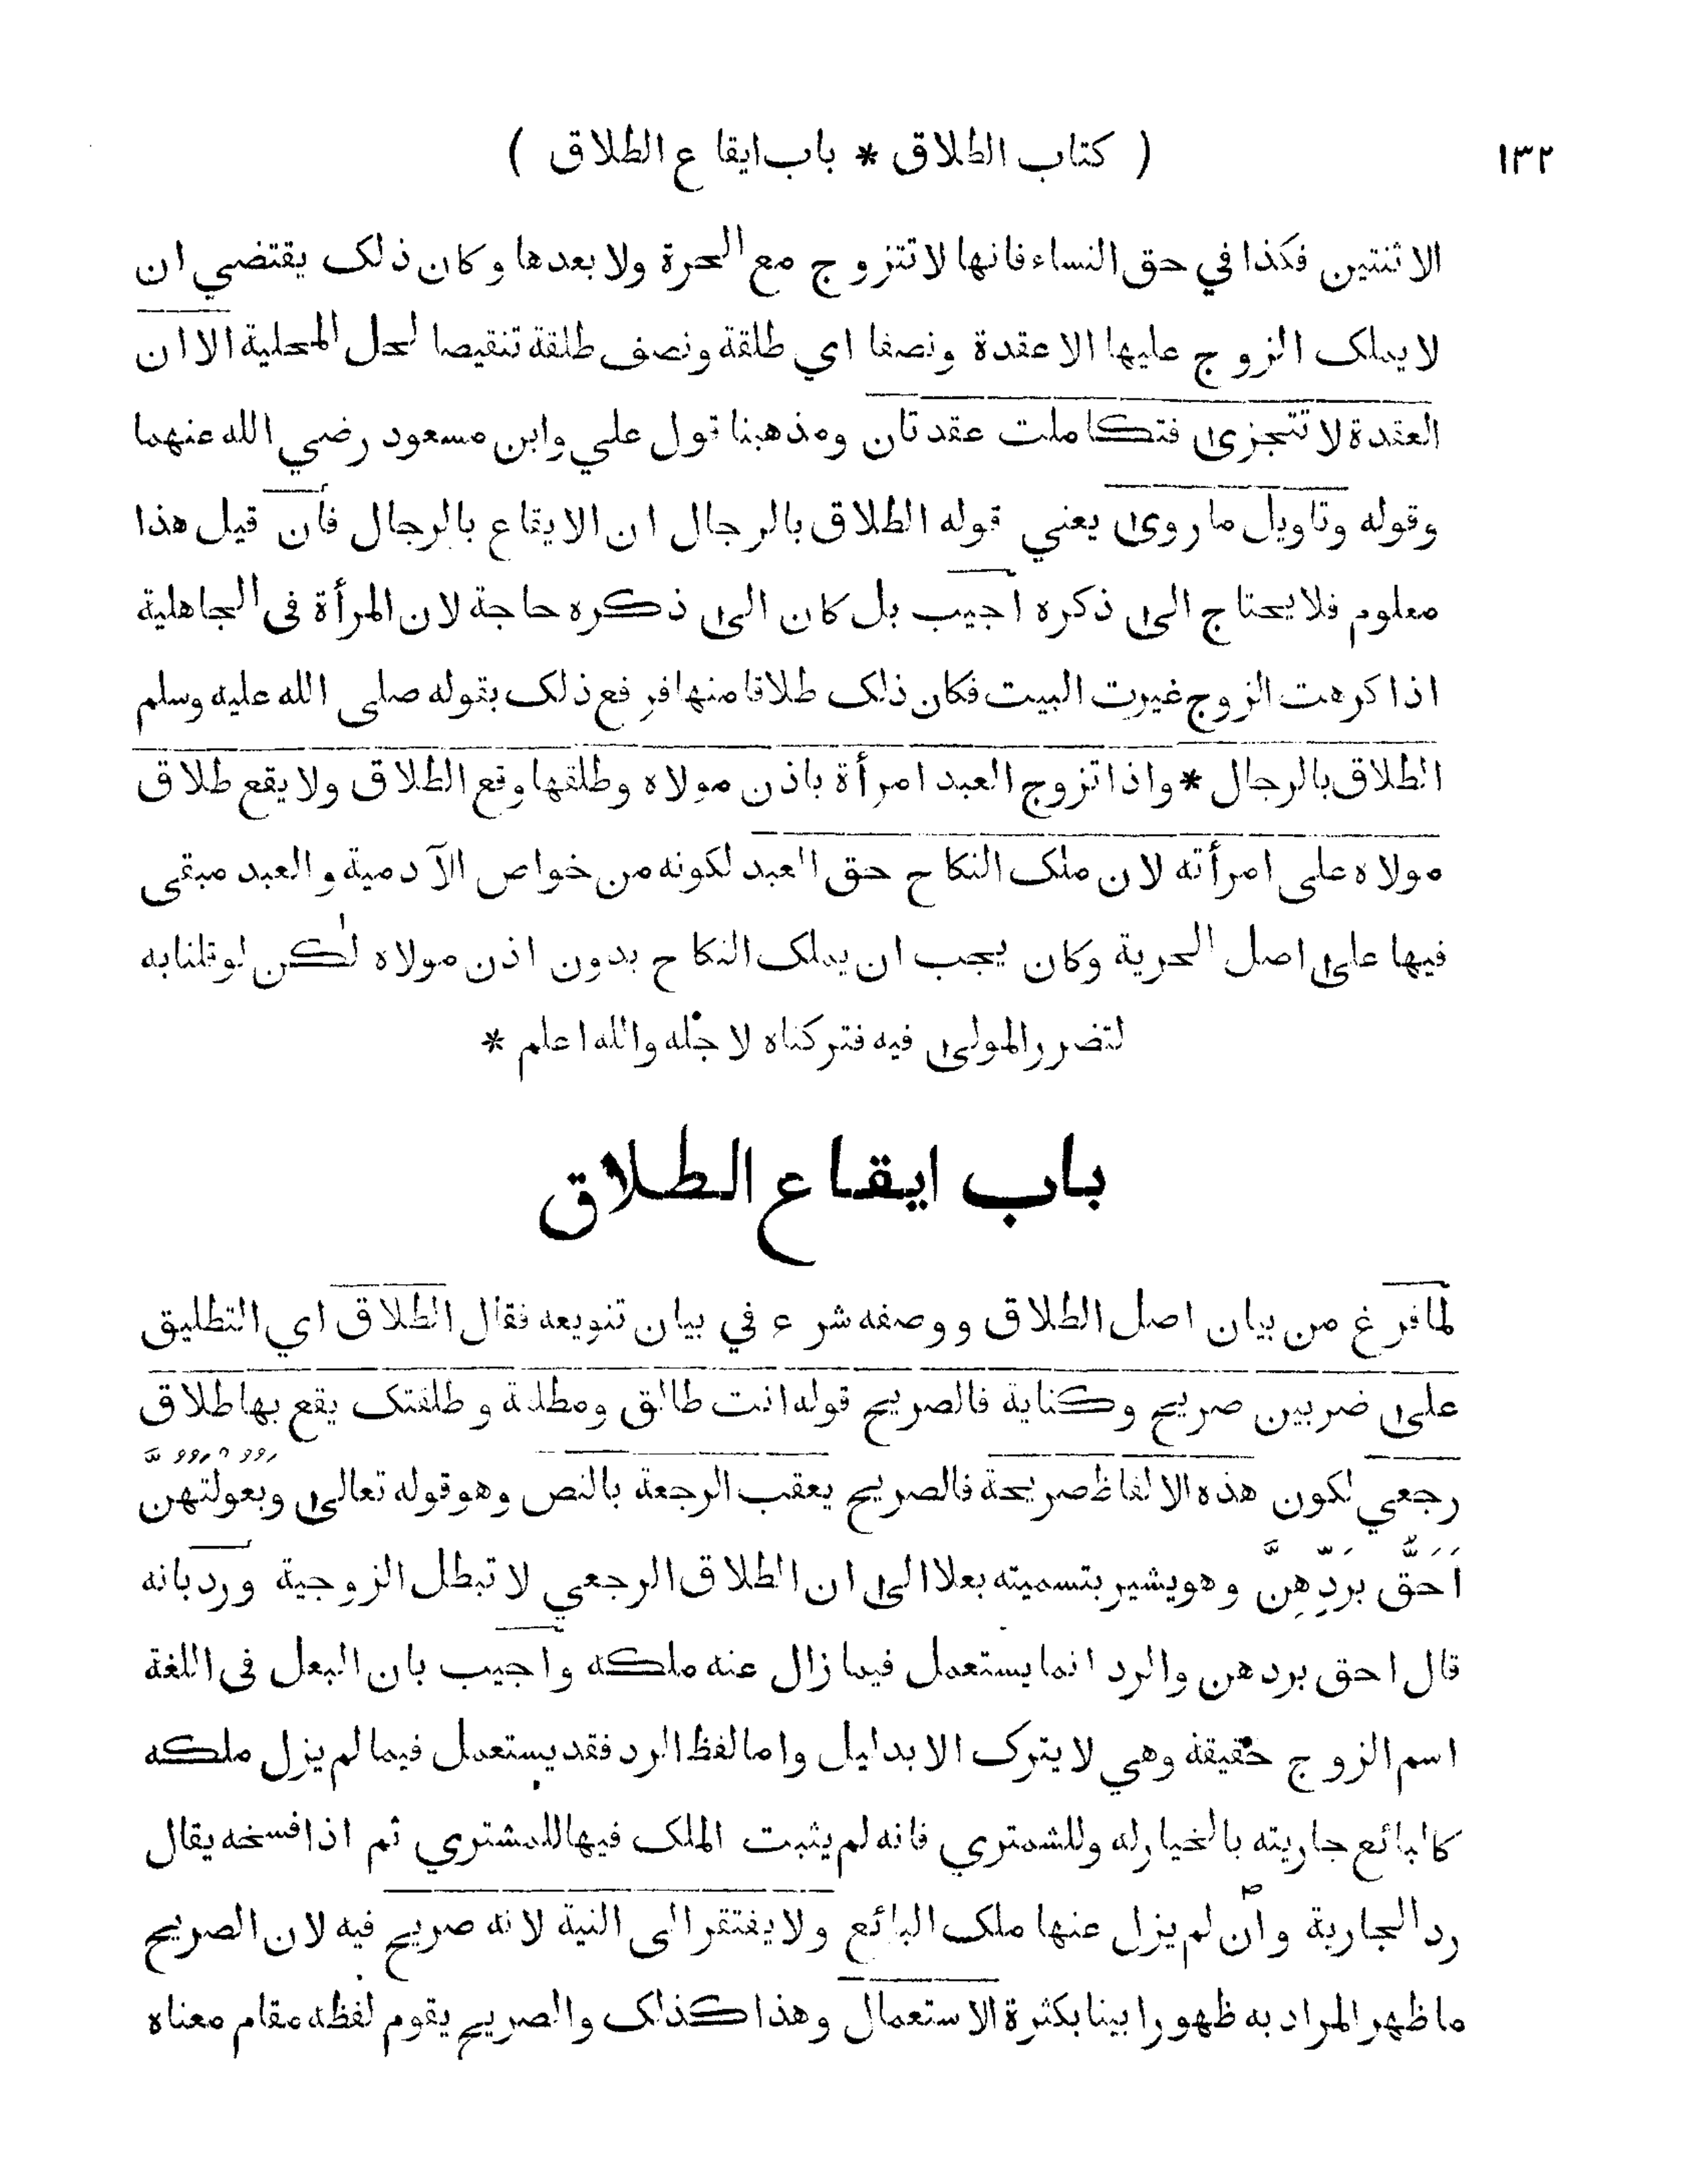 ١٣٢ ( كتاب الطلاق * باب ايقاع الطلاق )
الا ثنتين فكذا في حق النساء فانها لا تتزوج مع الحرة ولا بعدها وكان ذلک يقتضي ان
لا يملک الزوج عليها الا عقدة ونصفا اي طلقة ونصف طلقة تنقيصا لحل المحلية الا ان
العقدة لا تتجزى فتكاملت عقدتان ومذهبنا قول علي وابن مسعود رضي الله عنهما
وقوله وتاويل ما روى يعني قوله الطلاق بالرجال ان الايقاع بالرجال فان قيل هذا
معلوم فلا يحتاج الى ذكره اجيب بل كان الى ذكره حاجة لان المرأة فى الجاهلية
اذا كرهت الزوج غيرت البيت فكان ذلک طلاقا منها فرفع ذلک بقوله صلى الله عليه وسلم
الطلاق بالرجال * واذا تزوج العبد امرأة باذن مولاه وطلقها وقع الطلاق ولا يقع طلاق
مولاه على امرأته لان ملک النكاح حق العبد لكونه من خواص الآدمية والعبد مبقى
فيها على اصل الحرية وكان يجب ان يملک النكاح بدون اذن مولاه لكن لو قلنا به
لتضرر المولى فيه فتركناه لاجله والله اعلم *
باب ايقاع الطلاق
لما فرغ من بيان اصل الطلاق ووصفه شرع في بيان تنويعه فقال الطلاق اي التطليق
على ضربين صريح وكناية فالصريح قوله انت طالق ومطلقة وطلقتک يقع بها طلاق
رجعي لكون هذه الالفاظ صريحة فالصريح يعقب الرجعة بالنص وهو قوله تعالى وَبُعُولَتُهُنَّ
اَحَقُّ بِرَدِّهِنَّ وهو يشير بتسميته بعلا الى ان الطلاق الرجعي لا تبطل الزوجية ورد بانه
قال احق بردهن والرد انما يستعمل فيما زال عنه ملكه واجيب بان البعل فى اللغة
اسم الزوج حقيقة وهي لا يترک الا بدليل واما لفظ الرد فقد يستعمل فيما لم يزل ملكه
كالبائع جاريته بالخيار له وللشمتري فانه لم يثبت الملک فيها للمشتري ثم اذا فسخه يقال
رد الجارية وان لم يزل عنها ملک البائع ولا يفتقر الى النية لانه صريح فيه لان الصريح
ما ظهر المراد به ظهورا بينا بكثرة الاستعمال وهذا كذلک والصريح يقوم لفظه مقام معناه